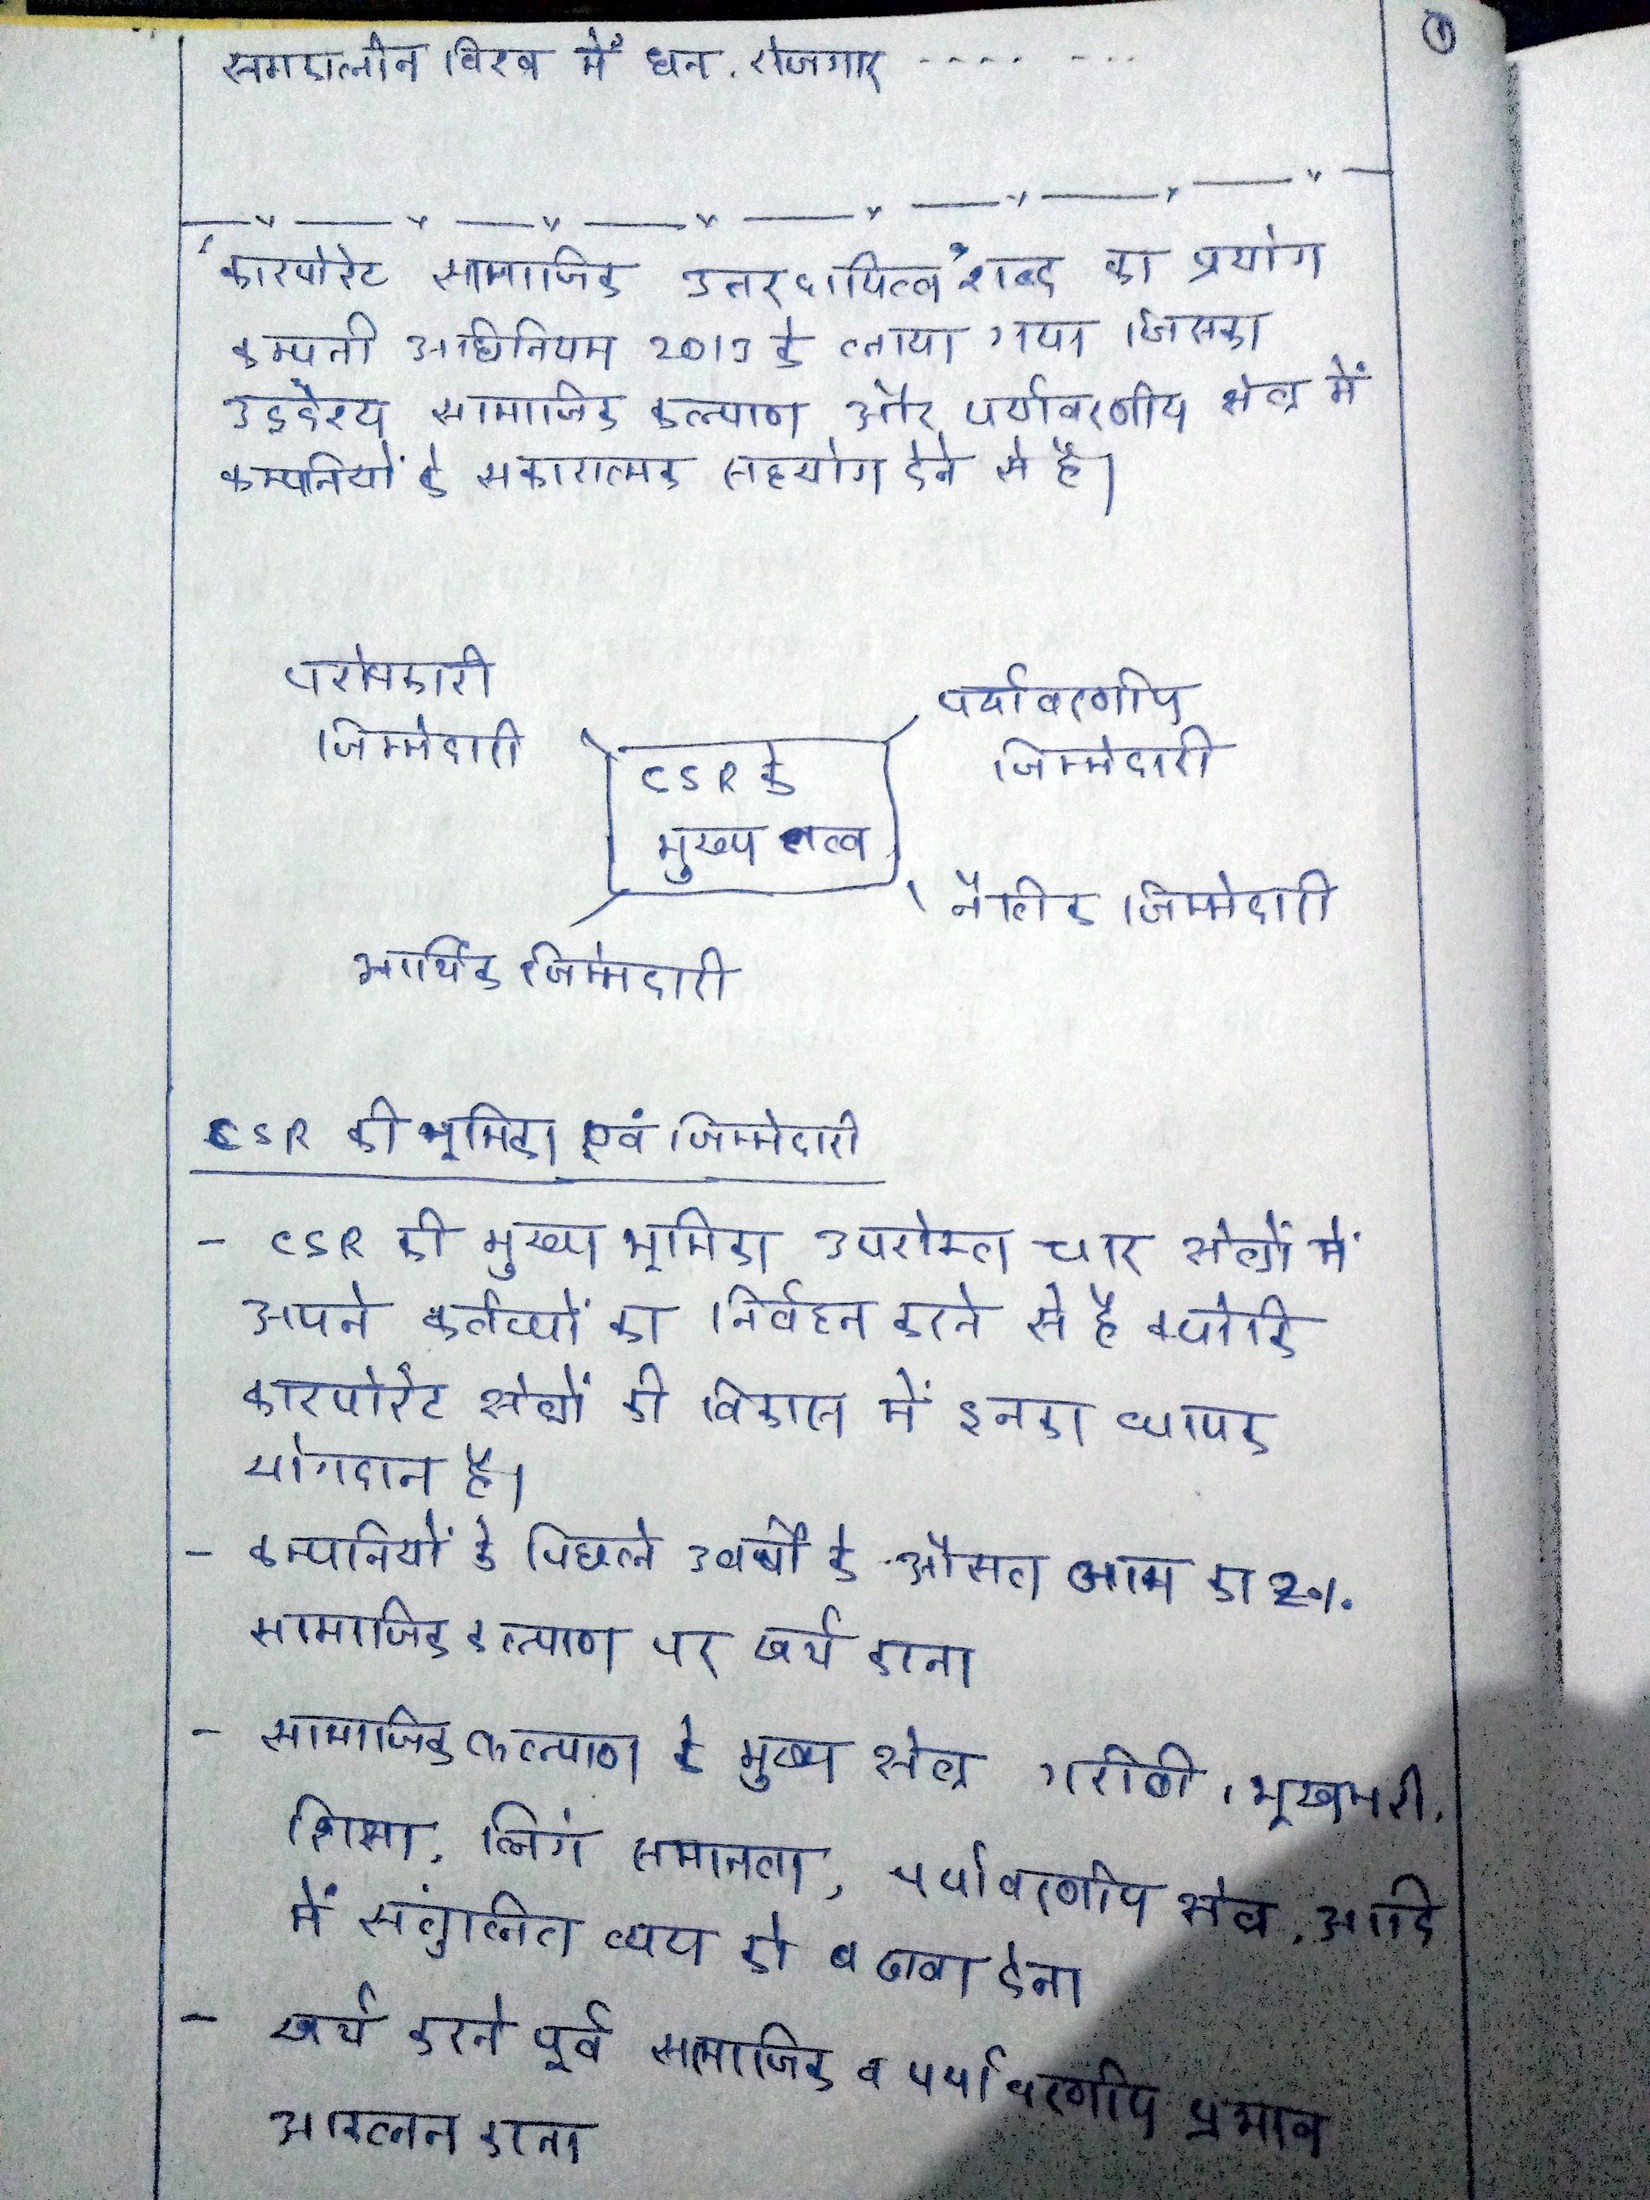 ①
समकालीन विश्व में धन, रोजगार .... ...
'कारपोरेट सामाजिक उत्तरदायित्व' शब्द का प्रयोग
कम्पनी अधिनियम 2013 के लाया गया जिसका
उद्देश्य सामाजिक कल्याण और पर्यावरणीय क्षेत्र में
कम्पनियों के सकारात्मक सहयोग देने से है।
परोपकारी
जिम्मेदारी
पर्यावरणीय
जिम्मेदारी
CSR के
मुख्य तत्व
नैतिक जिम्मेदारी
आर्थिक जिम्मेदारी
CSR की भूमिका एवं जिम्मेदारी
- CSR की मुख्य भूमिका उपरोक्त चार क्षेत्रों में
अपने कर्तव्यों का निर्वहन करने से है क्योकि
कारपोरेट क्षेत्रों की विकास में इनका व्यापक
योगदान है।
- कम्पनियों के पिछले 3 वर्षों के औसत आय का 2%
सामाजिक कल्याण पर खर्च करना
- सामाजिक कल्याण के मुख्य क्षेत्र गरीबी, भूखमरी,
शिक्षा, लिंग समानता, पर्यावरणीय क्षेत्र, आदि
में संतुलित व्यय को बढावा देना
- खर्च करने पूर्व सामाजिक व पर्यावरणीय प्रभाव
आकलन करना